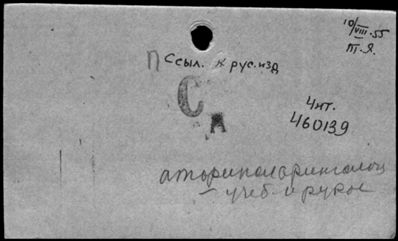 10/VIII.55
т.я.
П Ссыл. к рус.изд
С
А
Чит.
460139
оториноларинголог
– учеб. и руков